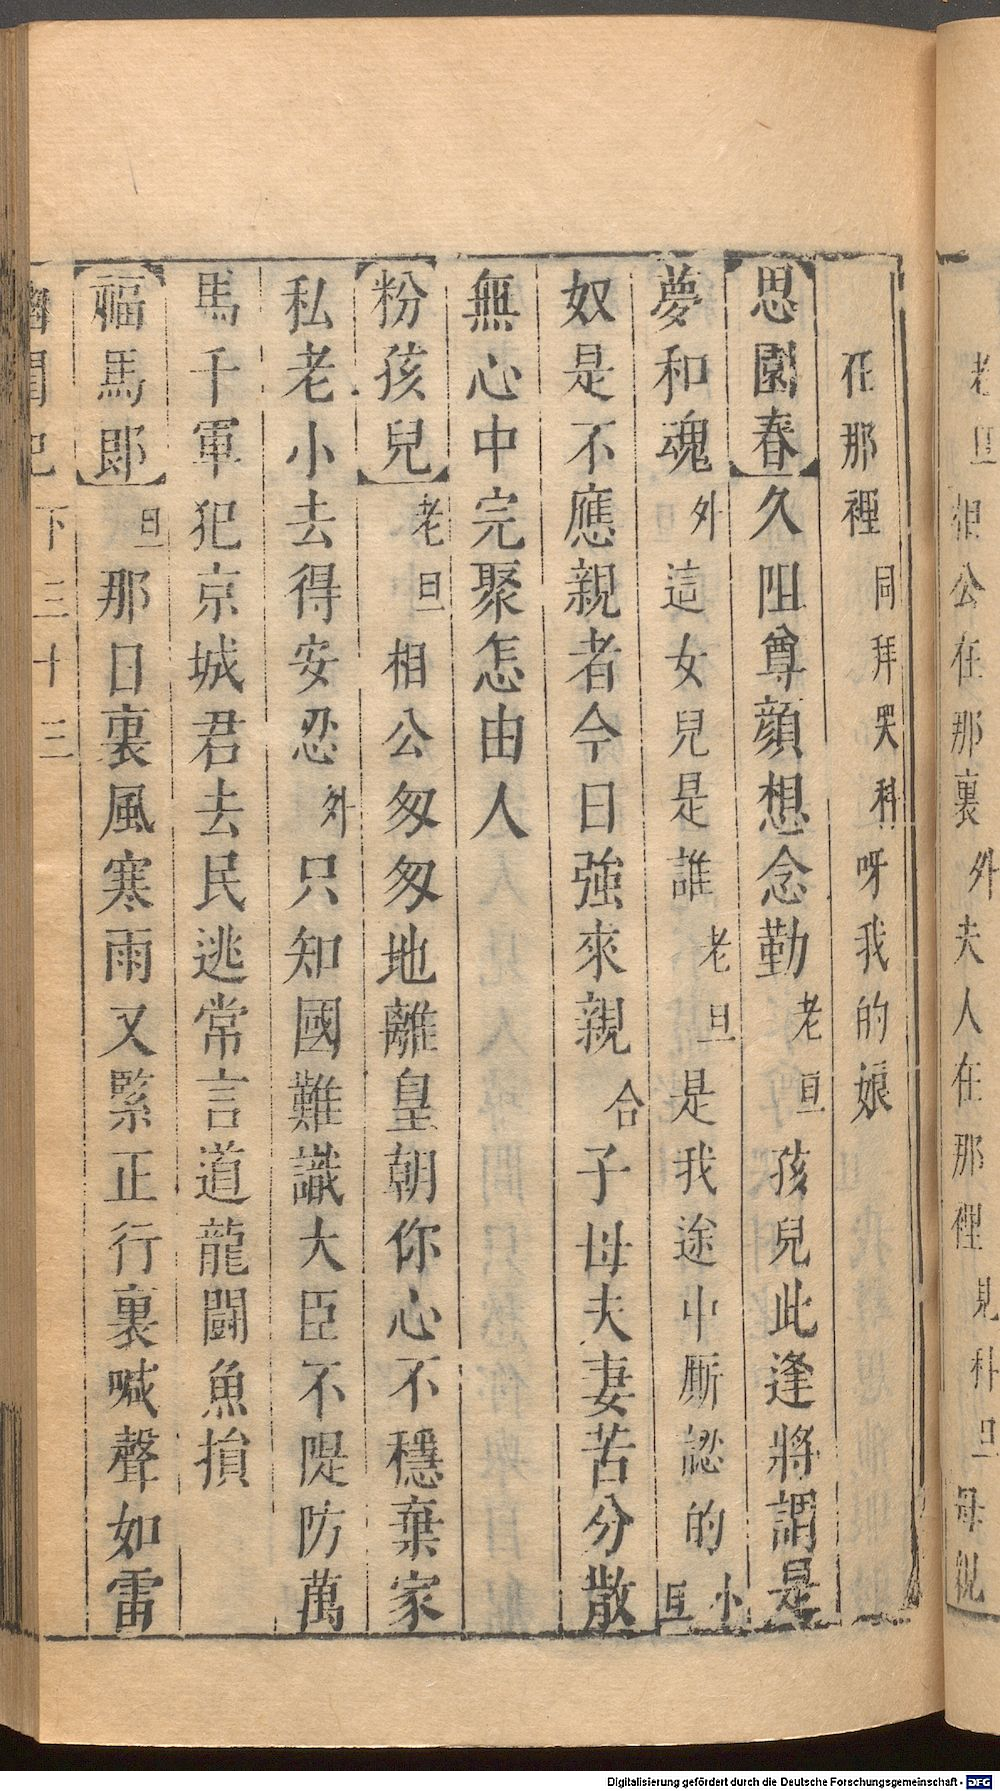 老旦相公在那裏外夫人在那裡見科旦母親
在那裡同拜哭科呀我的娘
思園春久阻尊顏想念勤老旦孩兒此逢將謂是
夢和魂外這女兒是誰老旦是我途中厮認的小旦
奴是不應親者今日強來親合子母夫妻苦分散
無心中完聚怎由人
粉孩兒老旦相公匆匆地離皇朝你心不穩棄家
私老小去得安忍外只知國難識大臣不隄防萬
馬千軍犯京城君去民逃常言道龍鬪魚損
福馬郎旦那日裏風寒雨又緊正行裏喊聲如雷
幽閨記 下 三十三
Digitalisierung gefördert durch die Deutsche Forschungsgemeinschaft - DFG